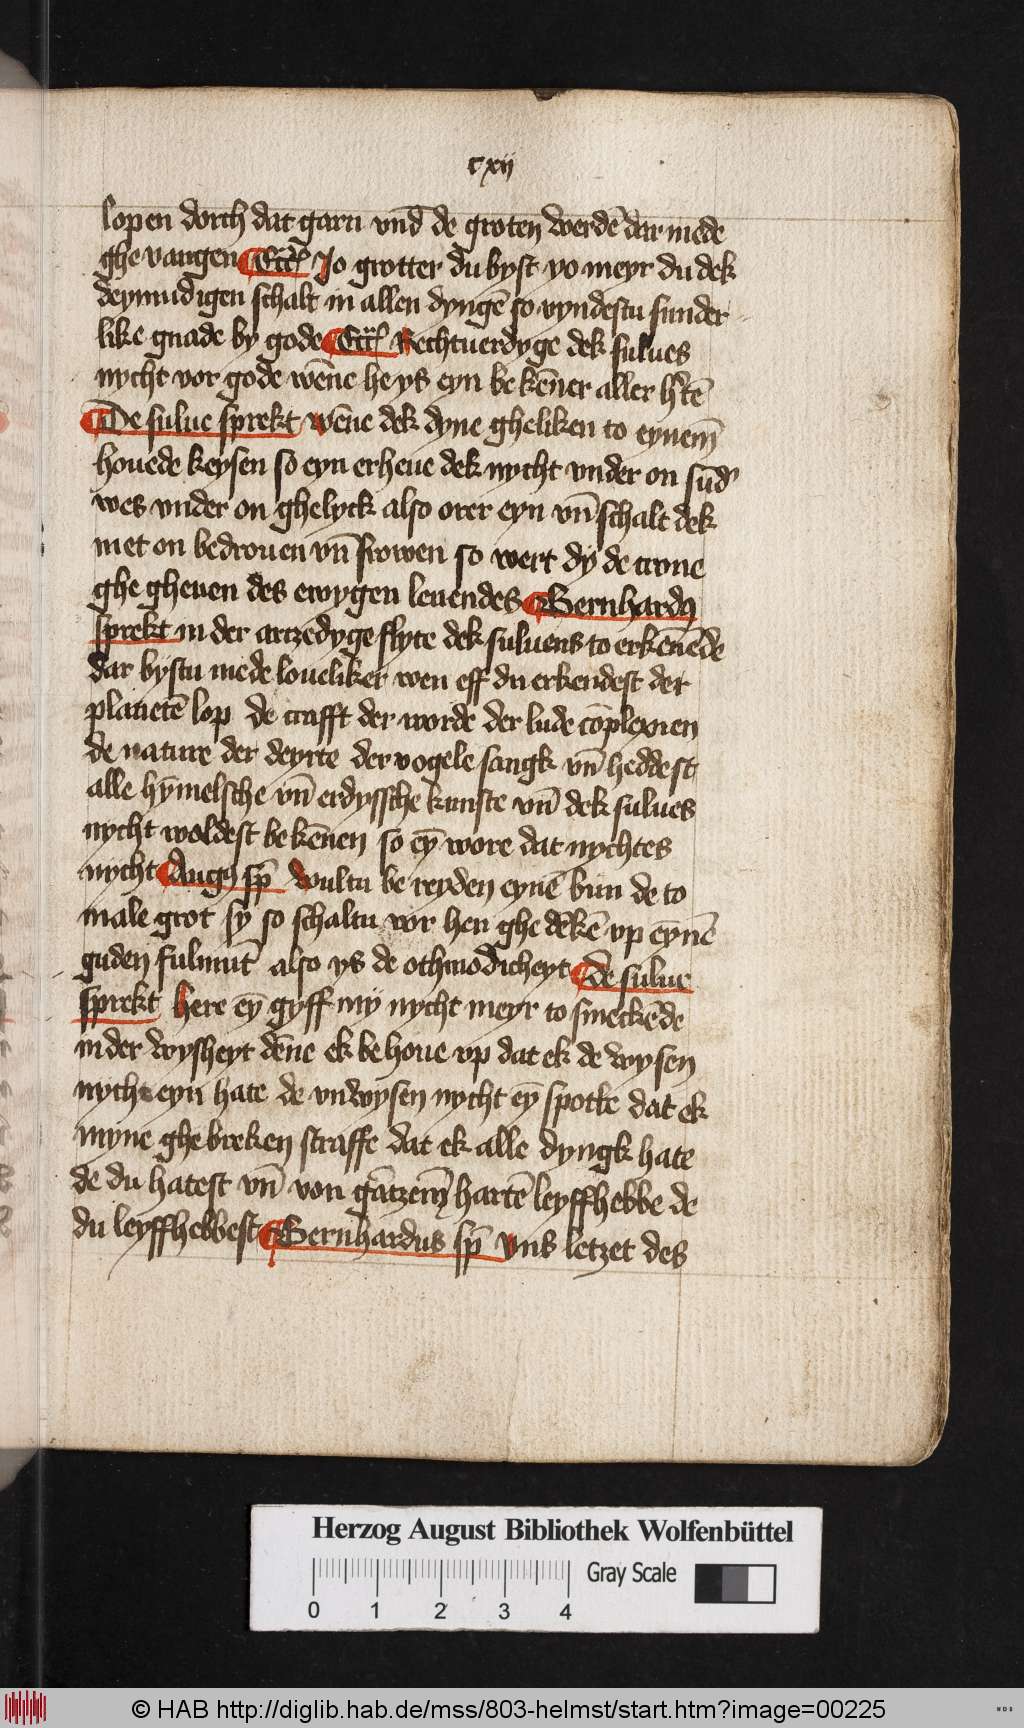 cxij
lopen dorch dat garn vnd de groten werdē dar mede
ghe vangen Eccͥ Jo grotter du byst yo meyr du dek
deymudigen schalt in allen dyngē so vyndestu sunder
like gnade by gode Eccͥ Rechtuerdyge dek sulues
nycht vor gode wēne he ys eyn be kēner aller htē
De sulue sprekt wēne dek dyne gheliken to eynem̄
houede keysen so eyn erheue dek nycht vnder on sūd'
wes vnder on ghelyck also orer eyn vn̄ schalt dek
met on bedrouen vn̄ frowen so wert dy de crone
ghe gheuen des ewygen leuendes Bernhardꝯ
sprekt in der artzedyge flyte dek suluens to erkenēde
dar bystu mede loueliker wen eff du erkendest der
planetē lop de crafft der worde der lude cōplexien
de nature der deyrte der vogele sangk vn̄ heddest
alle hȳmelsche vn̄ erdyssche kunste vn̄ dek sulues
nycht woldest be kēnen so eȳ wore dat nychtes
nycht Augꝯ sp̄ wultu be reyden eynē bun de to
male grot sy so schaltu vor hen ghe dēkē vp eynē
guden fulmūt also ys de othmodicheyt De sulue
sprekt here eȳ gyff my nycht meyr to smeckēde
in der wysheyt dēne ek be houe vp dat ek de wysen
nycht eyn hate de vnwysen nycht eȳ spotte dat ek
myne ghebreken straffe dat ek alle dyngk hate
de du hatest vn̄ von gātzem̄ hartē leyffhebbe de
du leyffhebbest Bernhardus sp̄ Vns letzet des
Herzog August Bibliothek Wolfenbüttel
Gray Scale
0 1 2 3 4
© HAB http://diglib.hab.de/mss/803-helmst/start.htm?image=00225